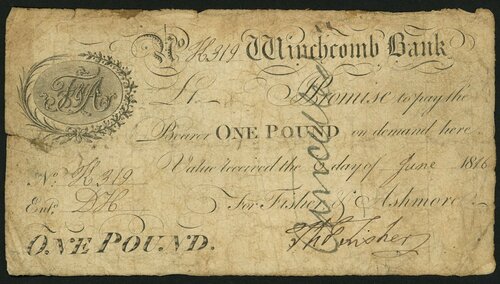 No R319 Winchcomb Bank
F&A
£1 I Promise to pay the
Bearer ONE POUND on demand here
Value received the day of June 1816
No. R319
Entd. DH
For Fisher & Ashmore
ONE POUND.
Thos Fisher
Cancelled